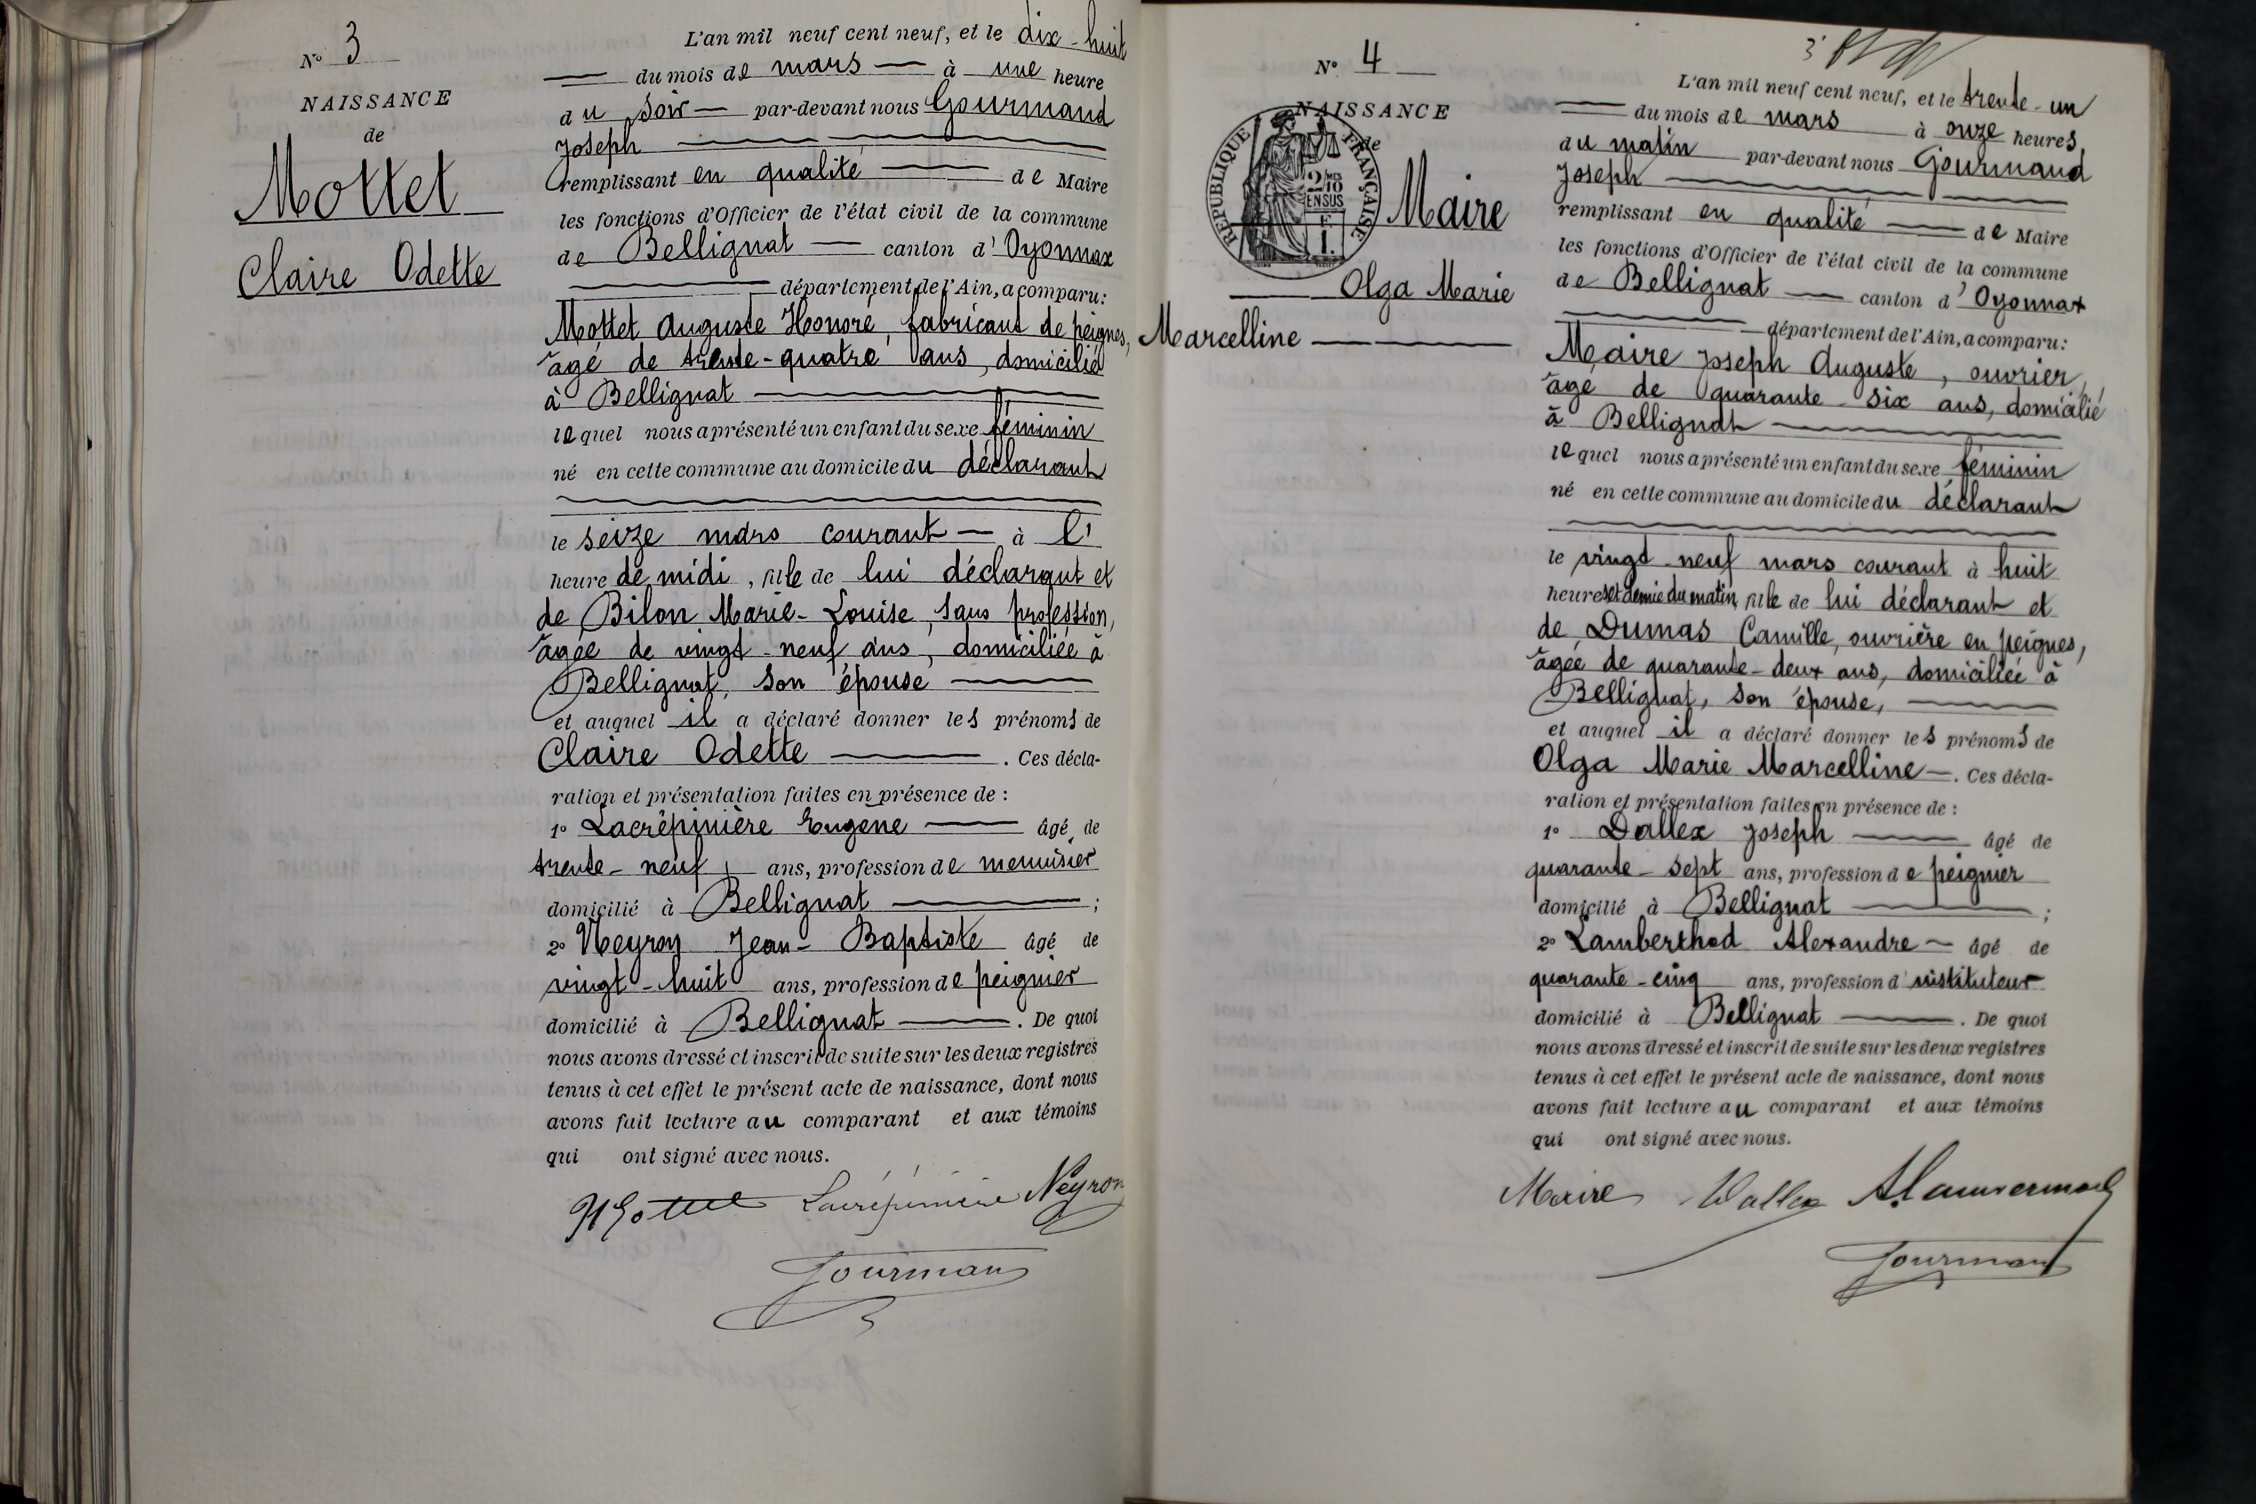 N° 3
NAISSANCE
de
Mottet
Claire Odette
L'an mil neuf cent neuf, et le dix-huit
du mois de mars à une heure
du soir par-devant nous Gourmand
Joseph
remplissant en qualité de Maire
les fonctions d'Officier de l'état civil de la commune
de Bellignat canton d'Oyonnax
département de l'Ain, a comparu:
Mottet Auguste Honoré, fabricant de peignes,
âgé de trente-quatre ans, domicilié
à Bellignat
lequel nous a présenté un enfant du sexe féminin
né en cette commune au domicile du déclarant
le seize mars courant à l'
heure de midi, fille de lui déclarant et
de Bilon Marie-Louise, sans profession,
âgée de vingt-neuf ans, domiciliée à
Bellignat, son épouse
et auquel il a déclaré donner les prénoms de
Claire Odette . Ces décla-
ration et présentation faites en présence de :
1° Lacrépinière Eugène âgé de
trente-neuf ans, profession de menuisier
domicilié à Bellignat ;
2° Neyron Jean-Baptiste âgé de
vingt-huit ans, profession de peignier
domicilié à Bellignat . De quoi
nous avons dressé et inscrit de suite sur les deux registres
tenus à cet effet le présent acte de naissance, dont nous
avons fait lecture au comparant et aux témoins
qui ont signé avec nous.
Mottet Lacrépinière Neyron
Gourmand
N° 4
NAISSANCE
de
RÉPUBLIQUE FRANÇAISE
2/10 MES
EN SUS
Maire
Olga Marie
Marcelline
L'an mil neuf cent neuf, et le trente-un
du mois de mars à onze heures
du matin par-devant nous Gourmand
Joseph
remplissant en qualité de Maire
les fonctions d'Officier de l'état civil de la commune
de Bellignat canton d'Oyonnax
département de l'Ain, a comparu:
Maire Joseph Auguste, ouvrier,
âgé de quarante-six ans, domicilié
à Bellignat
lequel nous a présenté un enfant du sexe féminin
né en cette commune au domicile du déclarant
le vingt-neuf mars courant à huit
heures et demie du matin, fille de lui déclarant et
de Dumas Camille, ouvrière en peignes,
âgée de quarante-deux ans, domiciliée à
Bellignat, son épouse,
et auquel il a déclaré donner les prénoms de
Olga Marie Marcelline . Ces décla-
ration et présentation faites en présence de :
1° Dallex Joseph âgé de
quarante-sept ans, profession de peignier
domicilié à Bellignat ;
2° Lamberthod Alexandre âgé de
quarante-cinq ans, profession d'instituteur
domicilié à Bellignat . De quoi
nous avons dressé et inscrit de suite sur les deux registres
tenus à cet effet le présent acte de naissance, dont nous
avons fait lecture au comparant et aux témoins
qui ont signé avec nous.
Maire Dallex
Gourmand